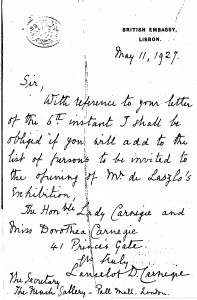 BRITISH EMBASSY,
LISBON.
May 11, 1927.
Sir,
With reference to your letter
of the 6th instant I shall be
obliged if you will add to the
list of persons to be invited to
the opening of Mr de Laszlo's
Exhibition,
The Honble Lady Carnegie and
Miss Dorothea Carnegie
41 Prince's Gate.
Yrs truly
Lancelot D. Carnegie
The Secretary
The French Gallery - Pall Mall. London.